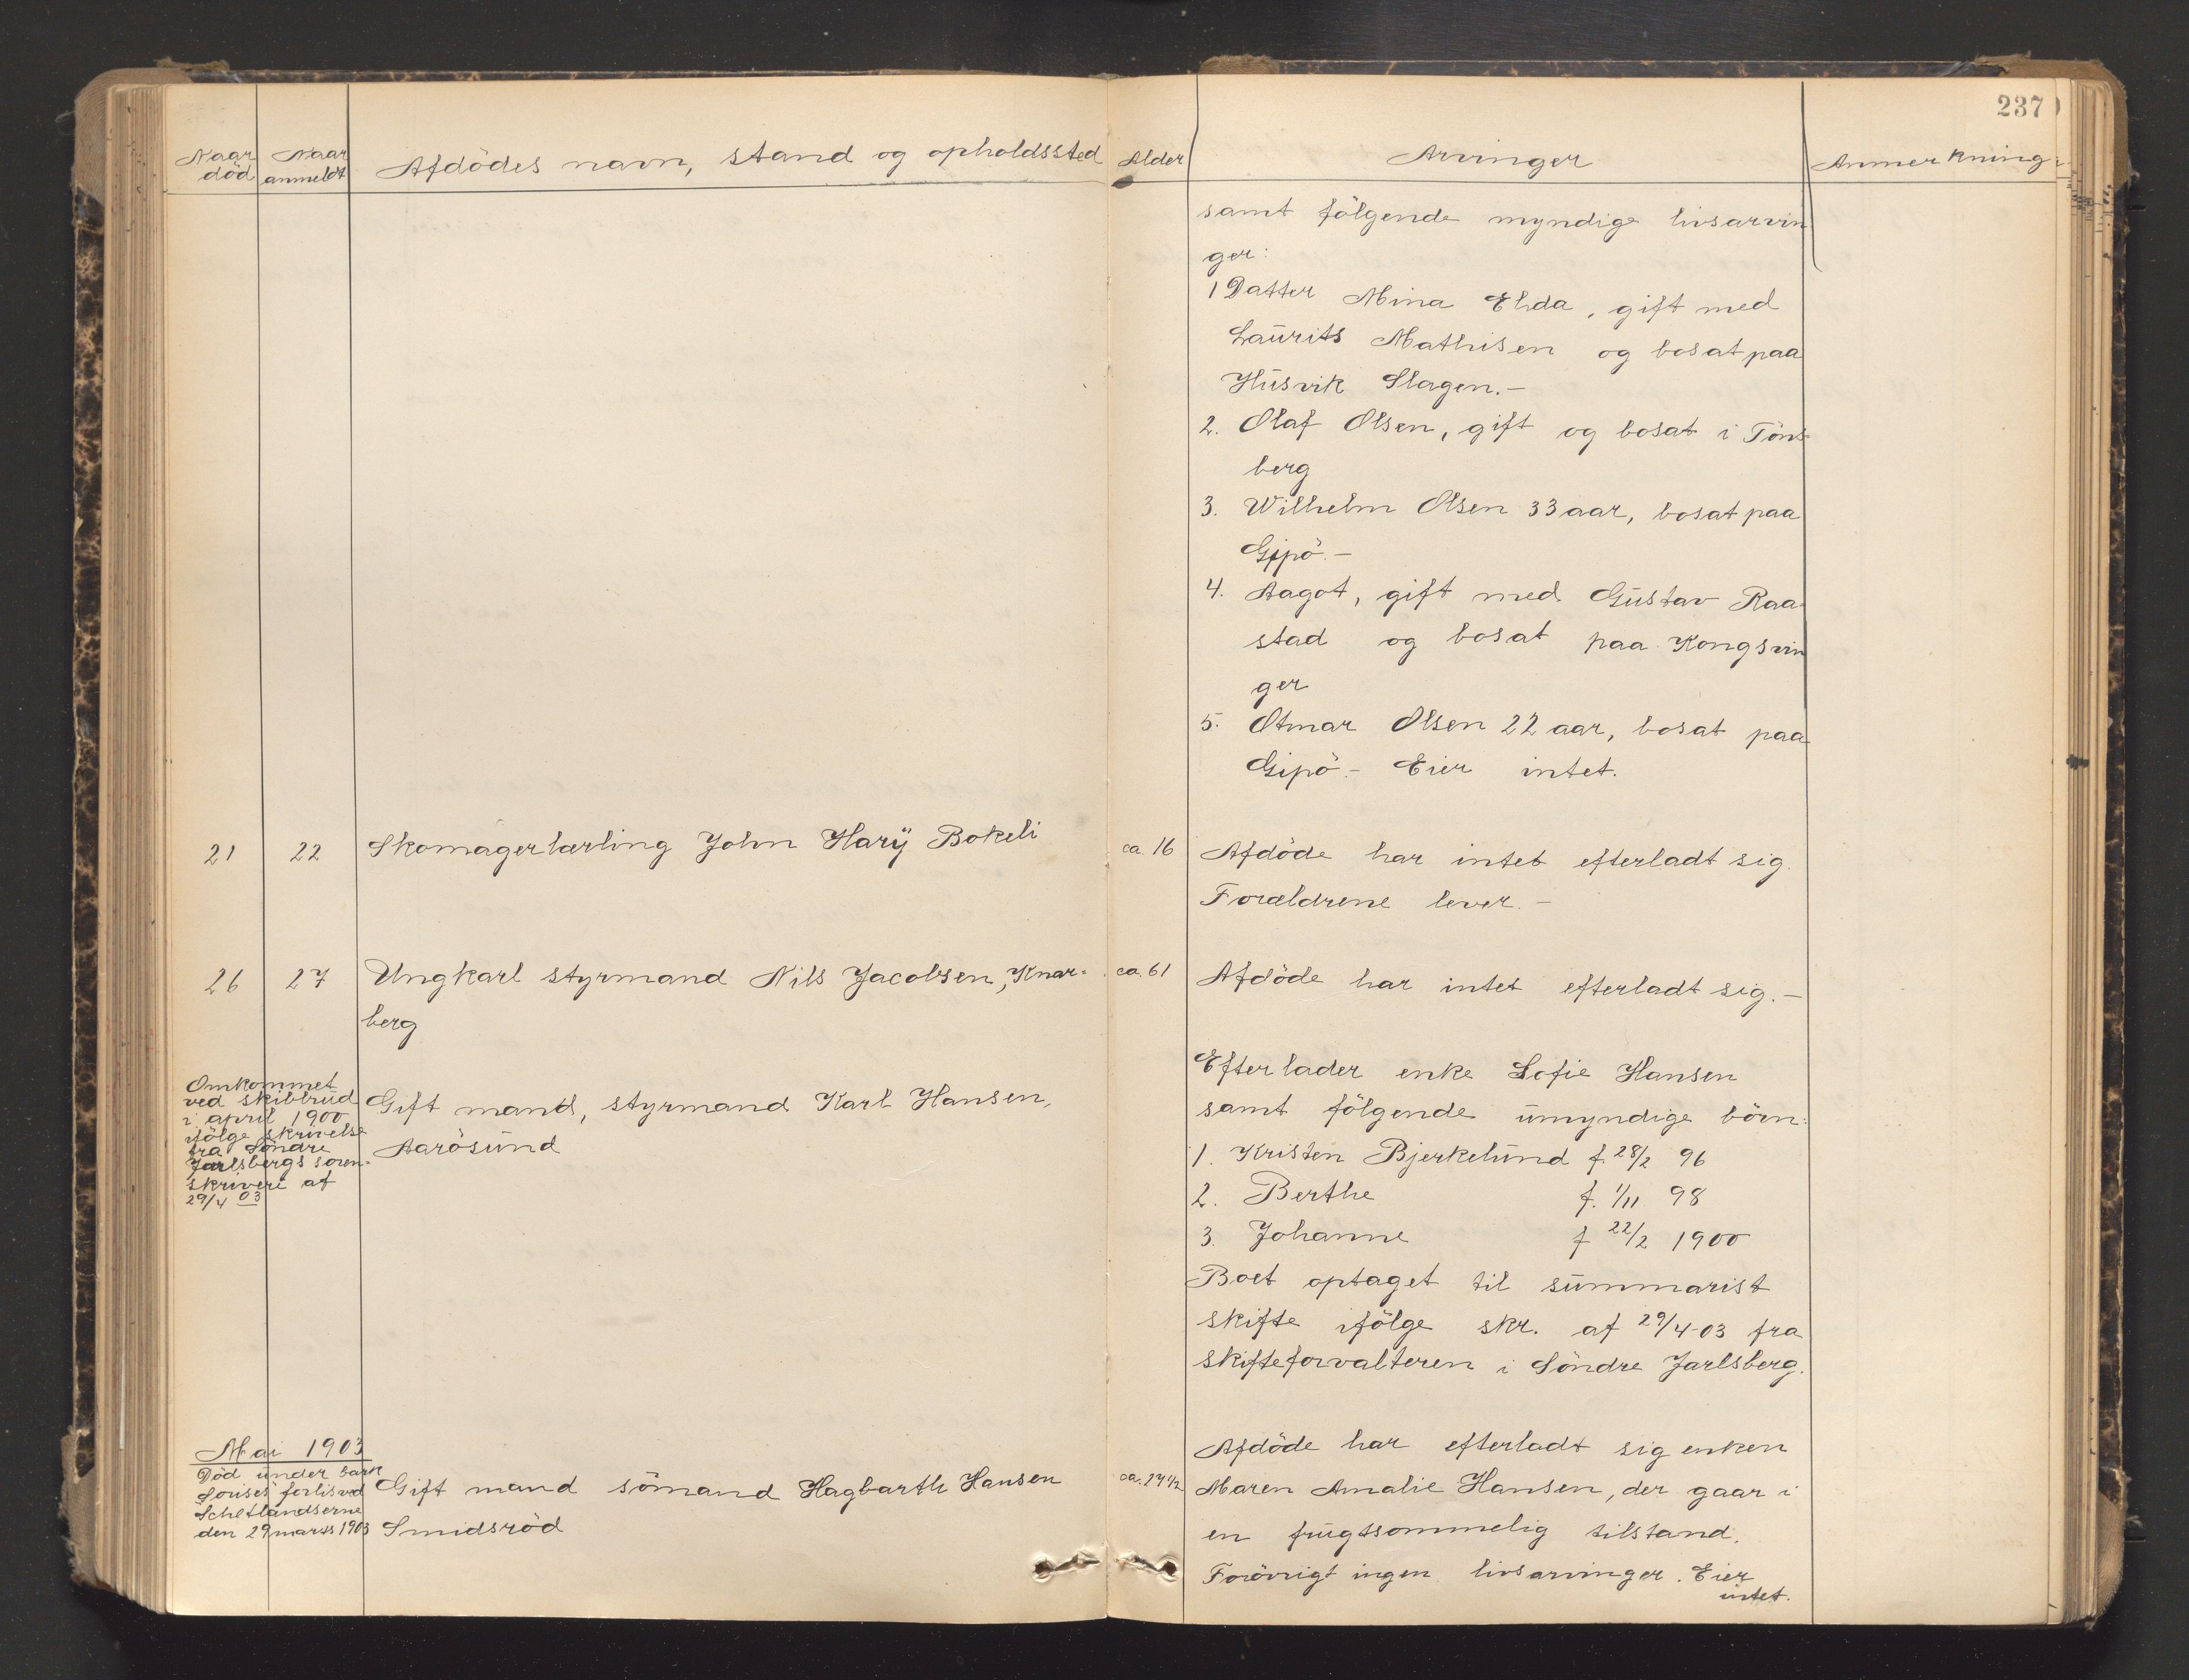 237
Naar død
Naar anmeldt
Afdödes navn, stand og opholdssted
Alder
Arvinger
Anmerkning
samt fölgende myndige livsarvin
ger:
1 Datter Mina Elida, gift med
Laurits Mathisen og bosat paa
Husvik Slagen.-
2. Olaf Olsen, gift og bosat i Töns-
berg
3. Wilhelm Olsen 33 aar, bosat paa
Gipö.-
4. Aagot, gift med Gustav Raa-
stad og bosat paa Kongsvin
ger
5. Otmar Olsen 22 aar, bosat paa
Gipö.- Eier intet.
21 22 Skomagerlærling John Harÿ Bokeli ca. 16 Afdöde har intet efterladt sig.
Forældrene lever.-
26 27 Ungkarl styrmand Nils Jacobsen, Knar- ca. 61 Afdöde har intet efterladt sig.-
berg
Omkommet
ved skibbrud
i april 1900
ifölge skrivelse
fra Söndre
Jarlsbergs soren-
skriveri af
29/4 03
Gift mand, styrmand Karl Hansen,
Aarösund
Efterlader enke Sofie Hansen
samt fölgende umyndige börn:
1. Kristen Bjerkelund f. 28/2 96
2. Berthe f. 1/11 98
3. Johanne f 22/2 1900
Boet optaget til summarist
skifte ifölge skr. af 29/4-03 fra
skifteforvalteren i Söndre Jarlsberg.
Mai 1903
Död under bark
Louises forlis ved
Schetlandserne
den 29 marts 1903
Gift mand sömand Hagbarth Hansen
Smidsröd
ca. 27 1/2
Afdöde har efterladt sig enken
Maren Amalie Hansen, der gaar i
en frugtsommelig tilstand.
Forövrigt ingen livsarvinger. Eier
intet.